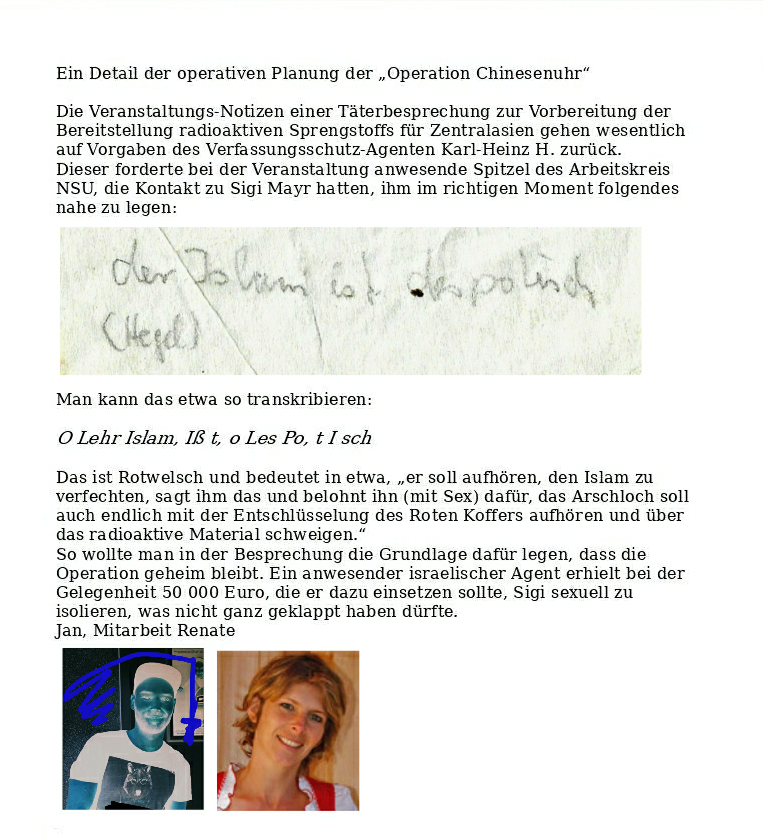 Ein Detail der operativen Planung der „Operation Chinesenuhr“
Die Veranstaltungs-Notizen einer Täterbesprechung zur Vorbereitung der
Bereitstellung radioaktiven Sprengstoffs für Zentralasien gehen wesentlich
auf Vorgaben des Verfassungsschutz-Agenten Karl-Heinz H. zurück.
Dieser forderte bei der Veranstaltung anwesende Spitzel des Arbeitskreis
NSU, die Kontakt zu Sigi Mayr hatten, ihm im richtigen Moment folgendes
nahe zu legen:
der Islam ist despotisch
(Hegel)
Man kann das etwa so transkribieren:
O Lehr Islam, Iß t, o Les Po, t I sch
Das ist Rotwelsch und bedeutet in etwa, „er soll aufhören, den Islam zu
verfechten, sagt ihm das und belohnt ihn (mit Sex) dafür, das Arschloch soll
auch endlich mit der Entschlüsselung des Roten Koffers aufhören und über
das radioaktive Material schweigen.“
So wollte man in der Besprechung die Grundlage dafür legen, dass die
Operation geheim bleibt. Ein anwesender israelischer Agent erhielt bei der
Gelegenheit 50 000 Euro, die er dazu einsetzen sollte, Sigi sexuell zu
isolieren, was nicht ganz geklappt haben dürfte.
Jan, Mitarbeit Renate